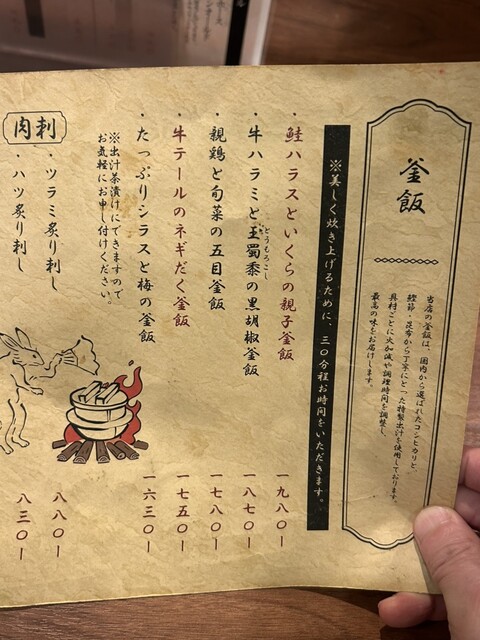 釜飯
当店の釜飯は、国内から選ばれたコシヒカリと、
鰹節・昆布から丁寧にとった特製出汁を使用しております。
具材ごとに火加減や調理時間を調整し、
最高の味をお届けします。
※美しく炊き上げるために、三〇分程お時間をいただきます。
・鮭ハラスといくらの親子釜飯 一九八〇ー
・牛ハラミと玉蜀黍の黒胡椒釜飯 一八七〇ー
とうもろこし
・親鶏と旬菜の五目釜飯 一七八〇ー
・牛テールのネギだく釜飯 一七五〇ー
・たっぷりシラスと梅の釜飯 一六三〇ー
※出汁茶漬けにできますので
お気軽にお申し付けください。
肉刺
・ツラミ炙り刺し 八八〇ー
・ハツ炙り刺し 八三〇ー